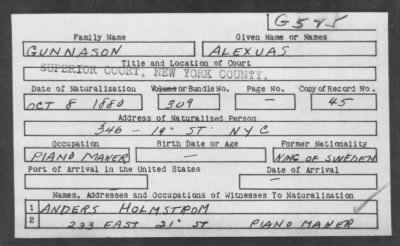 G525
Family Name Given Name or Names
GUNNASON ALEXUAS
Title and Location of Court
SUPERIOR COURT, NEW YORK COUNTY.
Date of Naturalization Volume or Bundle No. Page No. Copy of Record No.
OCT 8 1880 309 — 45
Address of Naturalized Person
346 - 19" ST. NYC
Occupation Birth Date or Age Former Nationality
PIANO MAKER — KING OF SWEDEN
Port of Arrival in the United States Date of Arrival
— —
Names, Addresses and Occupations of Witnesses To Naturalization
1 ANDERS HOLMSTROM
2 233 EAST 21" ST PIANO MAKER